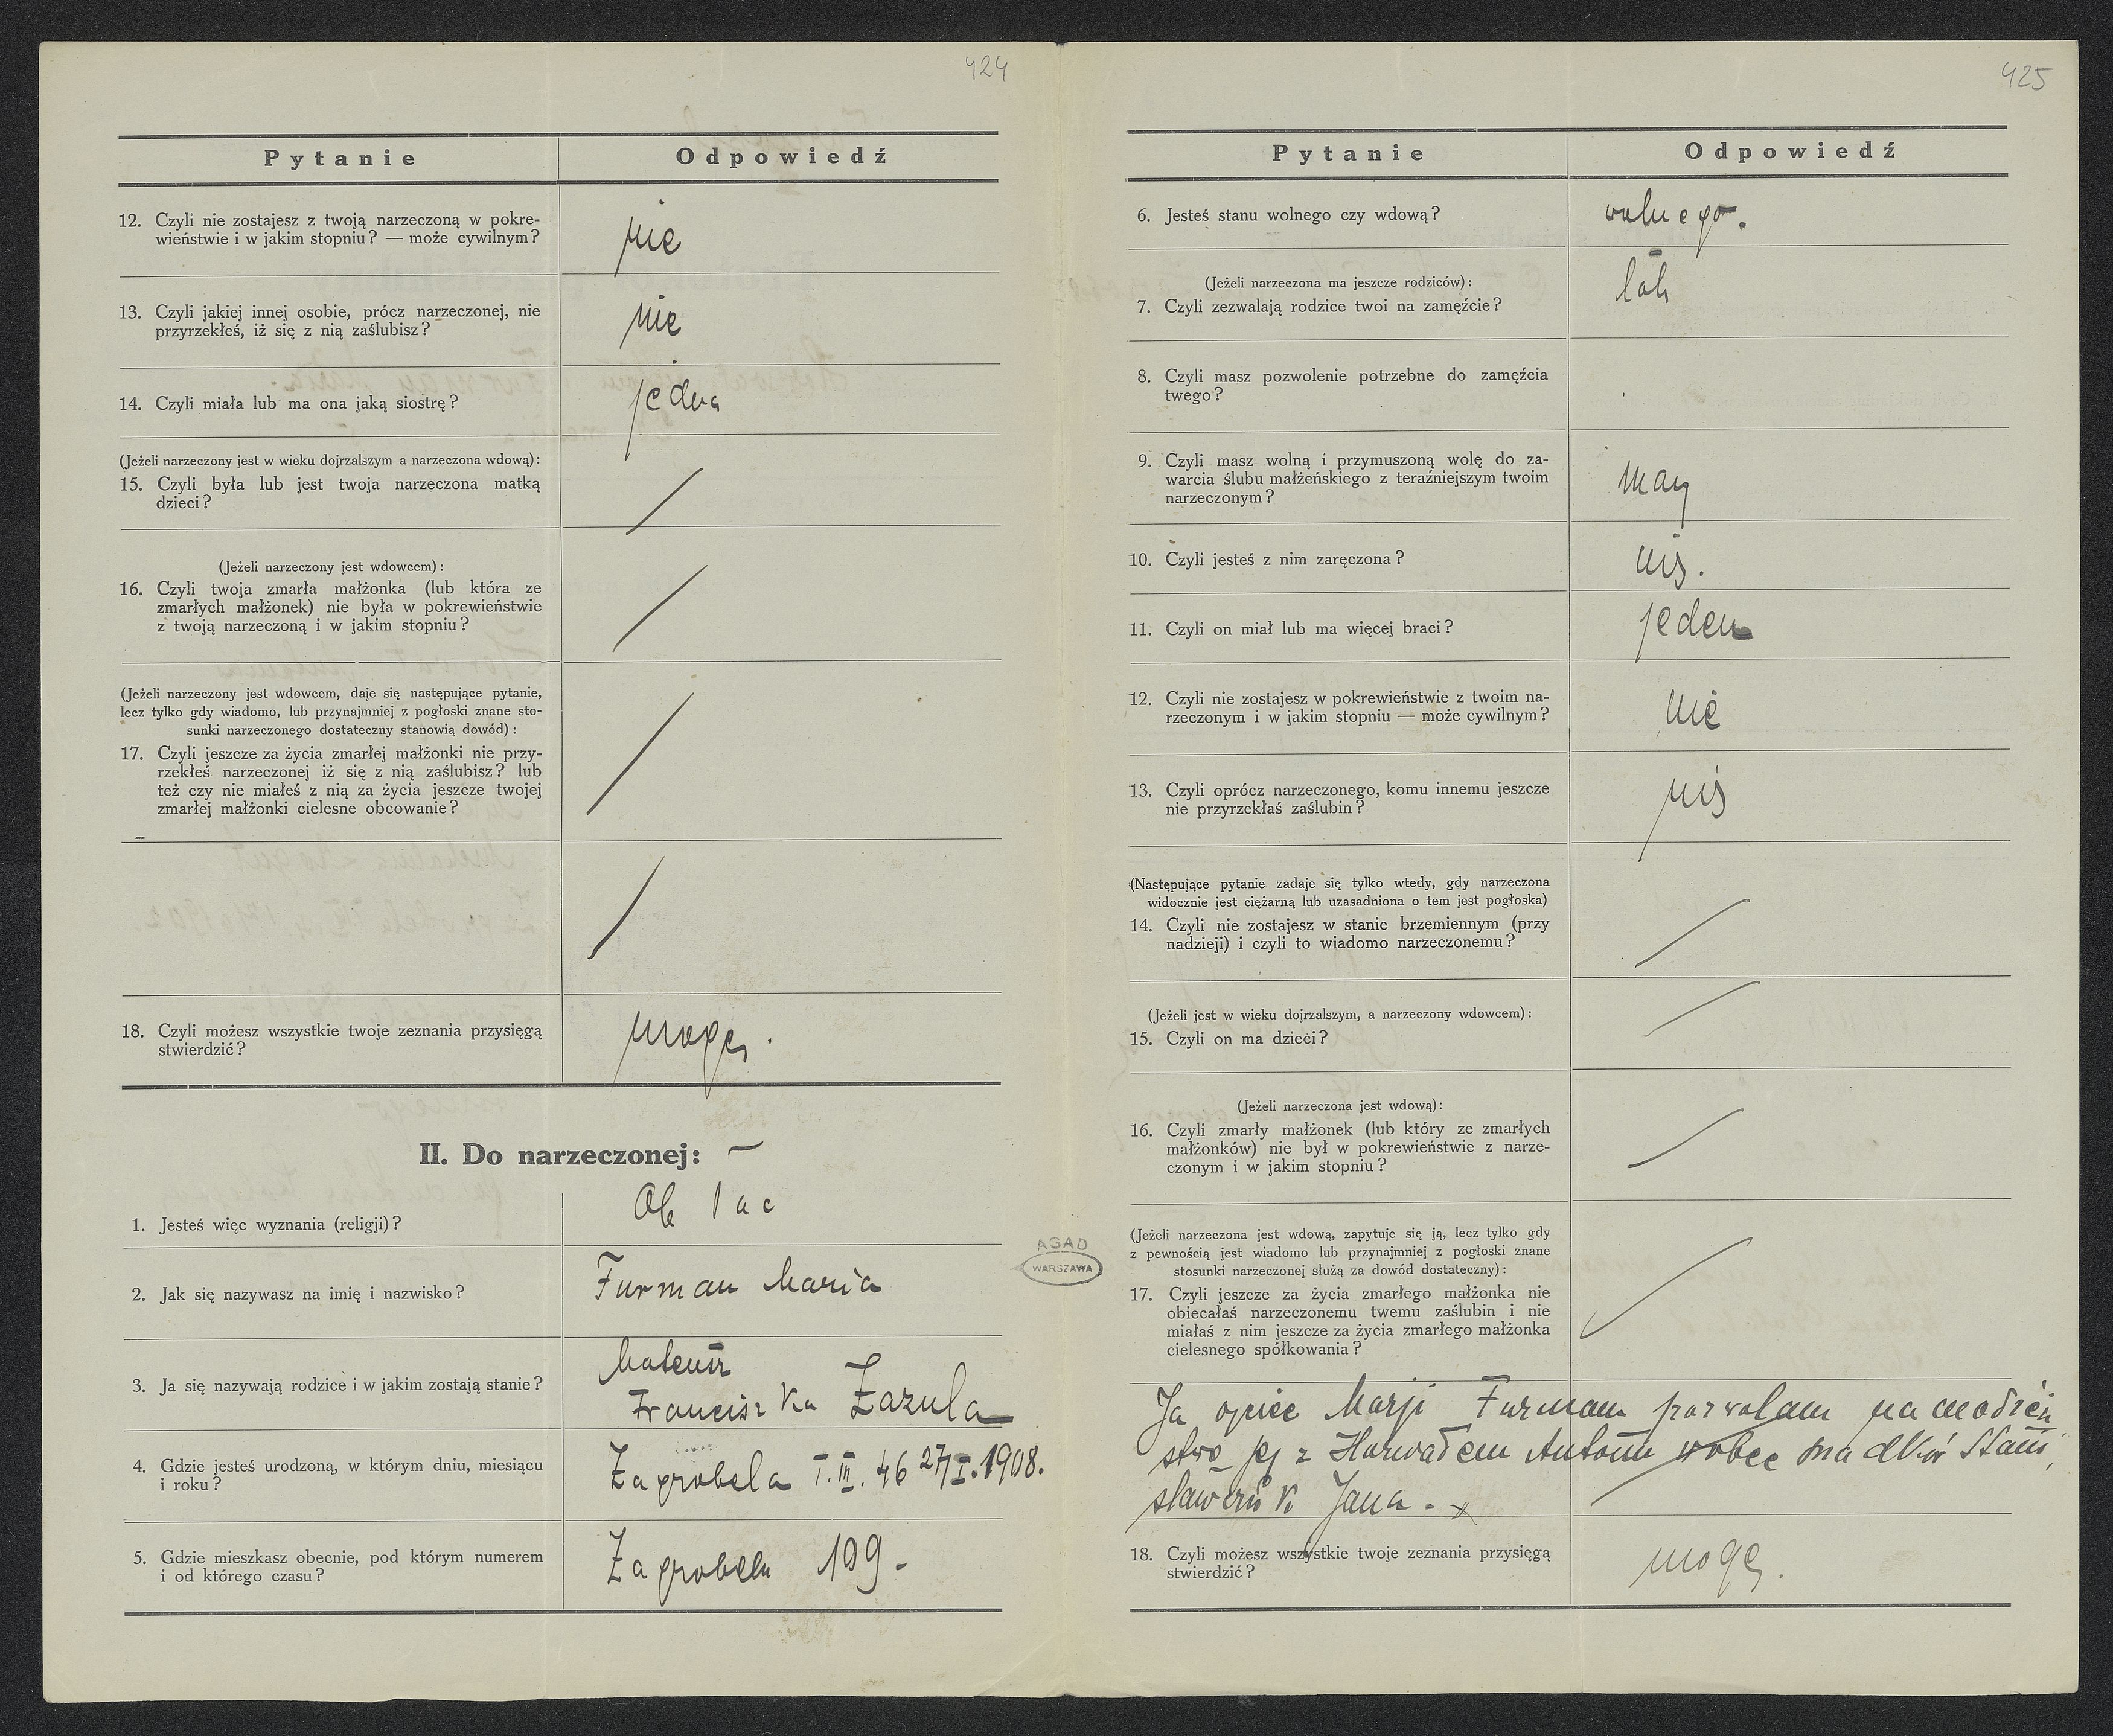 424
Pytanie Odpowiedź
12. Czyli nie zostajesz z twoją narzeczoną w pokre-
wieństwie i w jakim stopniu? — może cywilnym?
nie
13. Czyli jakiej innej osobie, prócz narzeczonej, nie
przyrzekłeś, iż się z nią zaślubisz?
nie
14. Czyli miała lub ma ona jaką siostrę?
jedna
(Jeżeli narzeczony jest w wieku dojrzalszym a narzeczona wdową):
15. Czyli była lub jest twoja narzeczona matką
dzieci?
(Jeżeli narzeczony jest wdowcem):
16. Czyli twoja zmarła małżonka (lub która ze
zmarłych małżonek) nie była w pokrewieństwie
z twoją narzeczoną i w jakim stopniu?
(Jeżeli narzeczony jest wdowcem, daje się następujące pytanie,
lecz tylko gdy wiadomo, lub przynajmniej z pogłoski znane sto-
sunki narzeczonego dostateczny stanowią dowód):
17. Czyli jeszcze za życia zmarłej małżonki nie przy-
rzekłeś narzeczonej iż się z nią zaślubisz? lub
też czy nie miałeś z nią za życia jeszcze twojej
zmarłej małżonki cielesne obcowanie?
18. Czyli możesz wszystkie twoje zeznania przysięgą
stwierdzić?
mogę.
II. Do narzeczonej:
1. Jesteś więc wyznania (religji)?
lac
2. Jak się nazywasz na imię i nazwisko?
Furman Maria
3. Ja się nazywają rodzice i w jakim zostają stanie?
Mateusz
Franciszka Zazula
4. Gdzie jesteś urodzoną, w którym dniu, miesiącu
i roku?
Zagrobela T. III. 46 27/I. 1908.
5. Gdzie mieszkasz obecnie, pod którym numerem
i od którego czasu?
Zagrobela 109 -
AGAD
WARSZAWA
425
Pytanie Odpowiedź
6. Jesteś stanu wolnego czy wdową?
wolnego.
(Jeżeli narzeczona ma jeszcze rodziców):
7. Czyli zezwalają rodzice twoi na zamęźcie?
8. Czyli masz pozwolenie potrzebne do zamęźcia
twego?
9. Czyli masz wolną i przymuszoną wolę do za-
warcia ślubu małżeńskiego z teraźniejszym twoim
narzeczonym?
mam
10. Czyli jesteś z nim zaręczona?
nie.
11. Czyli on miał lub ma więcej braci?
jeden
12. Czyli nie zostajesz w pokrewieństwie z twoim na-
rzeczonym i w jakim stopniu — może cywilnym?
nie
13. Czyli oprócz narzeczonego, komu innemu jeszcze
nie przyrzekłaś zaślubin?
nie
(Następujące pytanie zadaje się tylko wtedy, gdy narzeczona
widocznie jest ciężarną lub uzasadniona o tem jest pogłoska)
14. Czyli nie zostajesz w stanie brzemiennym (przy
nadzieji) i czyli to wiadomo narzeczonemu?
(Jeżeli jest w wieku dojrzalszym, a narzeczony wdowcem):
15. Czyli on ma dzieci?
(Jeżeli narzeczona jest wdową):
16. Czyli zmarły małżonek (lub który ze zmarłych
małżonków) nie był w pokrewieństwie z narze-
czonym i w jakim stopniu?
(Jeżeli narzeczona jest wdową, zapytuje się ją, lecz tylko gdy
z pewnością jest wiadomo lub przynajmniej z pogłoski znane
stosunki narzeczonej służą za dowód dostateczny):
17. Czyli jeszcze za życia zmarłego małżonka nie
obiecałaś narzeczonemu twemu zaślubin i nie
miałaś z nim jeszcze za życia zmarłego małżonka
cielesnego spółkowania?
Ja ojciec Marji Furman pozwalam na
stwo jej z Antonim wobec Stani
Jana.
18. Czyli możesz wszystkie twoje zeznania przysięgą
stwierdzić?
mogę.